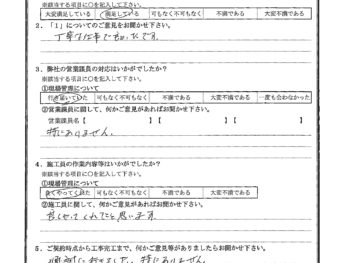 ※該当する項目に○を記入して下さい。
大変満足している 満足している 可もなく不可もなく 不満である 大変不満である
2．「1」についてのご意見をお聞かせ下さい。
丁寧な仕事でよかったです。
3．弊社の営業課員の対応はいかがでしたか？
※該当する項目に○を記入して下さい。
①現場管理について
行き届いていた 可もなく不可もなく 不満である 大変不満である 一度も会わなかった
②営業課員に関して、何かご意見があればお聞かせ下さい。
営業課員名【 】【 】【 】
特にありません。
4．施工員の作業内容等はいかがでしたか？
※該当する項目に○を記入して下さい。
①現場管理について
良くやってくれた 可もなく不可もなく 不満である 大変不満である
②施工員に関して、何かご意見があればお聞かせ下さい。
良くやってくれたと思います
5．ご契約時点から工事完工まで、何かご意見等がありましたらお聞かせ下さい。
特にありません。